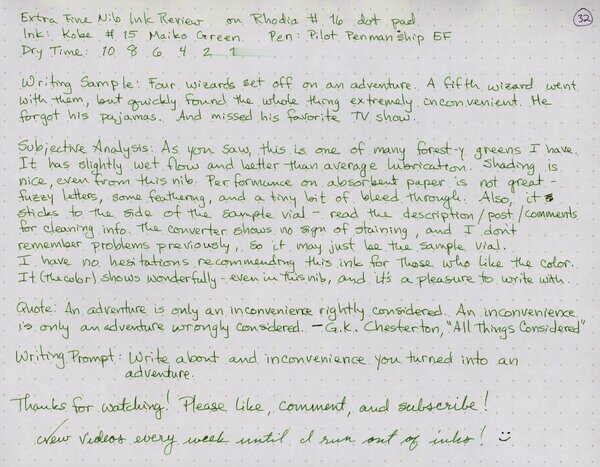 Extra Fine Nib Ink Review on Rhodia #16 dot pad.
32
Ink: Kobe #15 Maiko Green. Pen: Pilot Penmanship EF
Dry Time: 10 8 6 4 2 1
Writing Sample: Four wizards set off on an adventure. A fifth wizard went
with them, but quickly found the whole thing extremely inconvenient. He
forgot his pajamas. And missed his favorite TV show.
Subjective Analysis: As you saw, this is one of many forest-y greens I have.
It has slightly wet flow and better than average lubrication. Shading is
nice, even from this nib. Performance on absorbent paper is not great -
fuzzy letters, some feathering, and a tiny bit of bleed through. Also, it
sticks to the side of the sample vial - read the description/post/comments
for cleaning info. The converter shows no sign of staining, and I don't
remember problems previously, so it may just be the sample vial.
I have no hesitations recommending this ink for those who like the color.
It (the color) shows wonderfully - even in this nib, and it's a pleasure to write with.
Quote: An adventure is only an inconvenience rightly considered. An inconvenience
is only an adventure wrongly considered. - G.K. Chesterton, "All Things Considered"
Writing Prompt: Write about and inconvenience you turned into an
adventure.
Thanks for watching! Please like, comment, and subscribe!
New videos every week until I run out of inks!